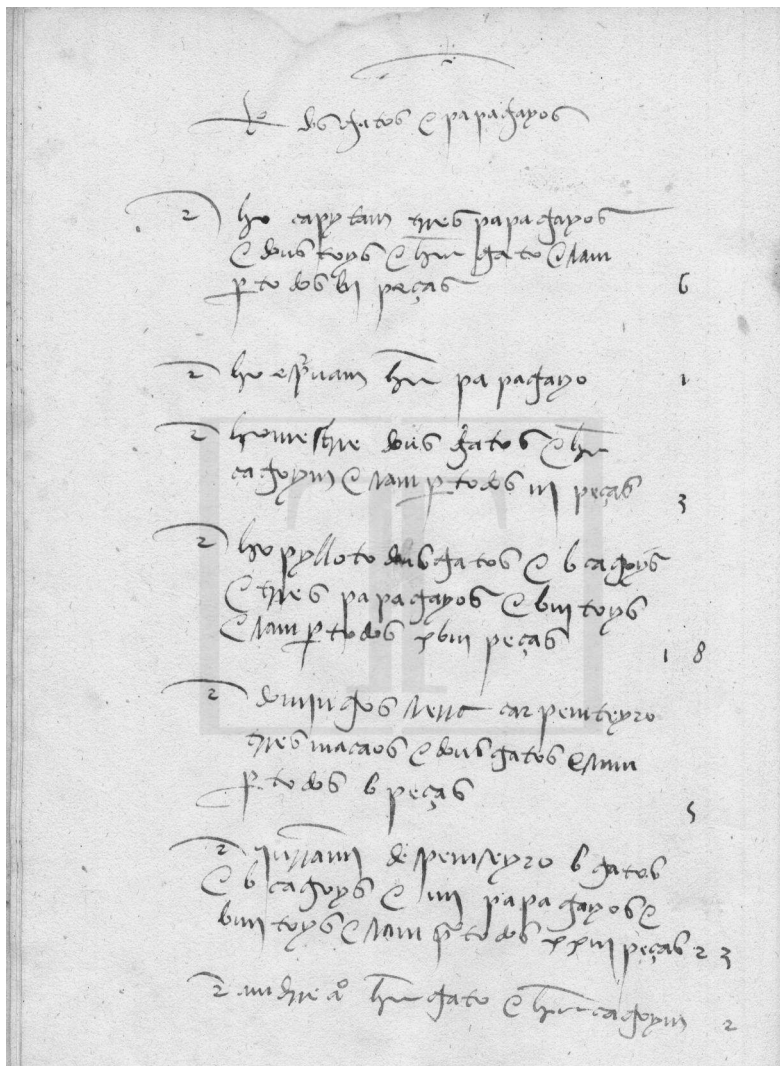 Tº dos gatos e papagayos
ho capytam tres papagayos
e dous toys e hum gato e sam
p todos bj peças 6
ho espriuam hum papagayo 1
ho mestre dous gatos e hum
çagoym e sam p todos iij peças 3
ho pylloto dous gatos e b çagoys
e tres papagayos e biij toys
e sam p todos xbiij peças 18
domingos carpenteyro
tres macaos e dous gatos e sam
p todos b peças 5
juram despenseyro b gatos
e b çagoys e iiij papagayos e
biiij toys e sam p todos xxiij peças 23
andre aº hum gato e hum çagoym 2